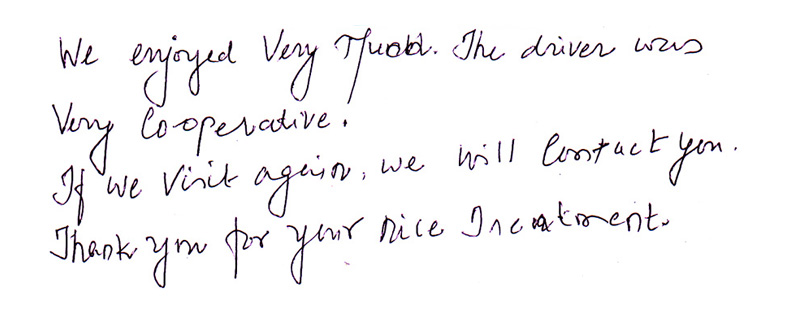 We enjoyed Very Much. The driver was
Very Co-operative.
If we Visit again, we will Contact you.
Thank you for your nice Treatment.